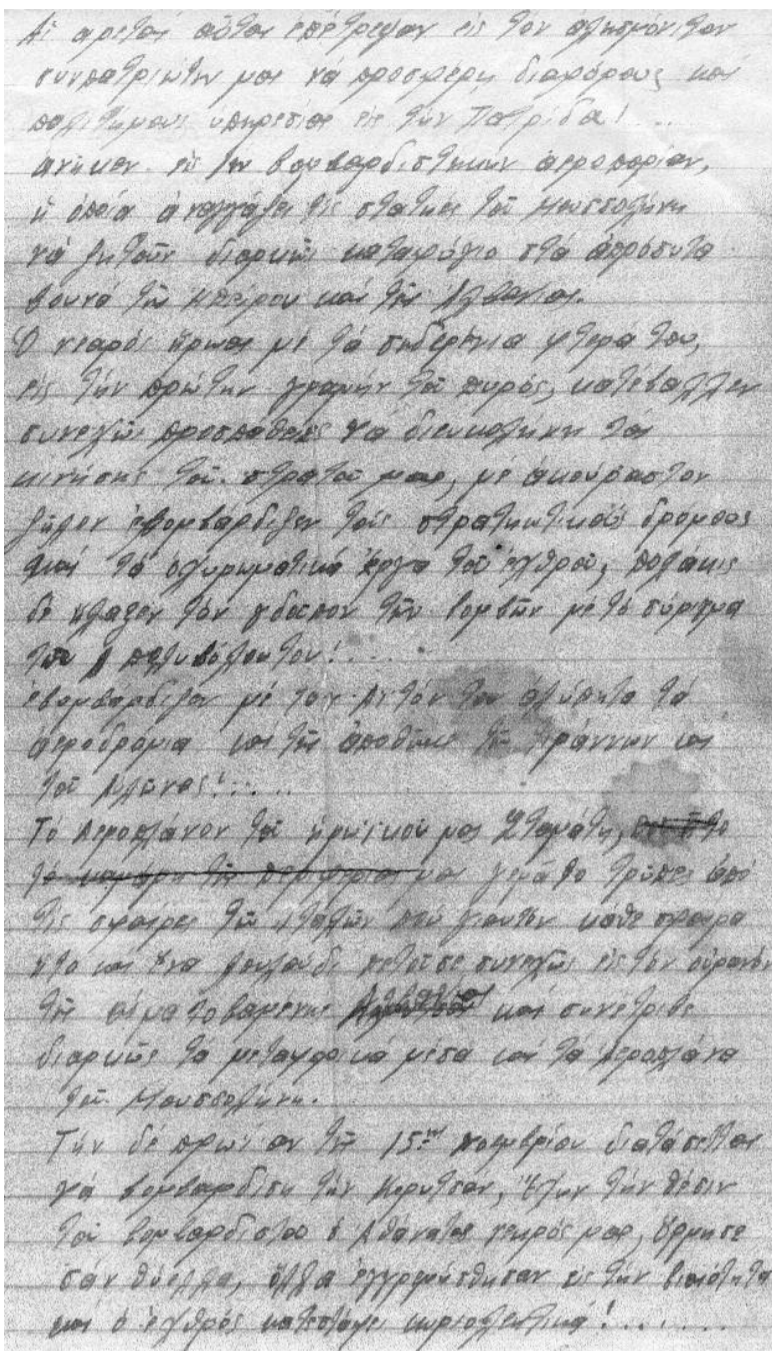 Αἱ ἀρεταί αὗται ἐπέτρεψαν εἰς τόν ἀλησμόνιτον
συνπατριώτην μας νά προσφέρη διαφόρους καί
πολιτίμους ὑπηρεσίας εἰς τήν Πατρίδα!...
ἀνῆκεν εἰς την βομβαρδιστηκήν ἀεροπορίαν,
ἡ ὁποία ἀναγγάζει τίς στατιές τοῦ Μουσσολήνη
νά ζητοῦν διαρκῶς καταφύγιο στά ἀπρόσιτα
βουνά τῆς Ηπείρου καί τῆς Αλβανίας.
Ὁ νεαρός ἥρωας μέ τά σηδερένια φτερά του,
εἰς τήν πρώτην γραμήν τοῦ πυρός, κατέβαλλεν
συνεχῶς προσπαθείας νά διευκολήνη τάς
κινήσης τοῦ στρατοῦ μας, μέ ἀκούραστον
ζῆλον ἐβομβάρδιζεν τούς στρατηωτικούς δρόμους
καί τά ὀχυρωματικά ἔργα τοῦ ἐχθροῦ, πολάκις
δέ ἤλαζεν τόν γδοῦπον τῶν βομβῶν μέ τό σύριγμα
του πολυβόλου του!....
ἐβομβάρδιζεν μέ τον Αετόν του ἀλύπητα τά
ἀεροδρόμια καί τίς ἀποθῆκες τῶν τυράννων και
τοῦ Αυλῶνας!.....
Τό Αεροπλάνον τοῦ ἡρωϊκοῦ μας Σταμάτη,
τό καμάρη τῆς μας γεμάτο τρῦπες ἀπό
τίς σφαίρες τῶν Ιταλῶν πού γιαυτόν κάθε σφαίρα
ητο και ενα λουλούδι πετοῦσε συνεχῶς εἰς τόν οὐρανόν
τῆς αἱματοβαμενης Αλβανίας καί συνέτριβε
διαρκῶς τά μεταφορικά μέσα καί τά Αεροπλάνα
τοῦ Μουσσολήνη.
Τήν δέ πρωίαν τῆς 15ης Νοεμβρίου διατάσεται
νά βομβαρδίση τήν Κορυτσαν, ἔχων τήν θέσιν
τοῦ βομβαρδιστοῦ ὁ Αθάνατος νεκρός μας, ὅρμησε
σάν θύελλα, εἰς τήν
καί ὁ ἐχθρός κυριολεκτικά!.......